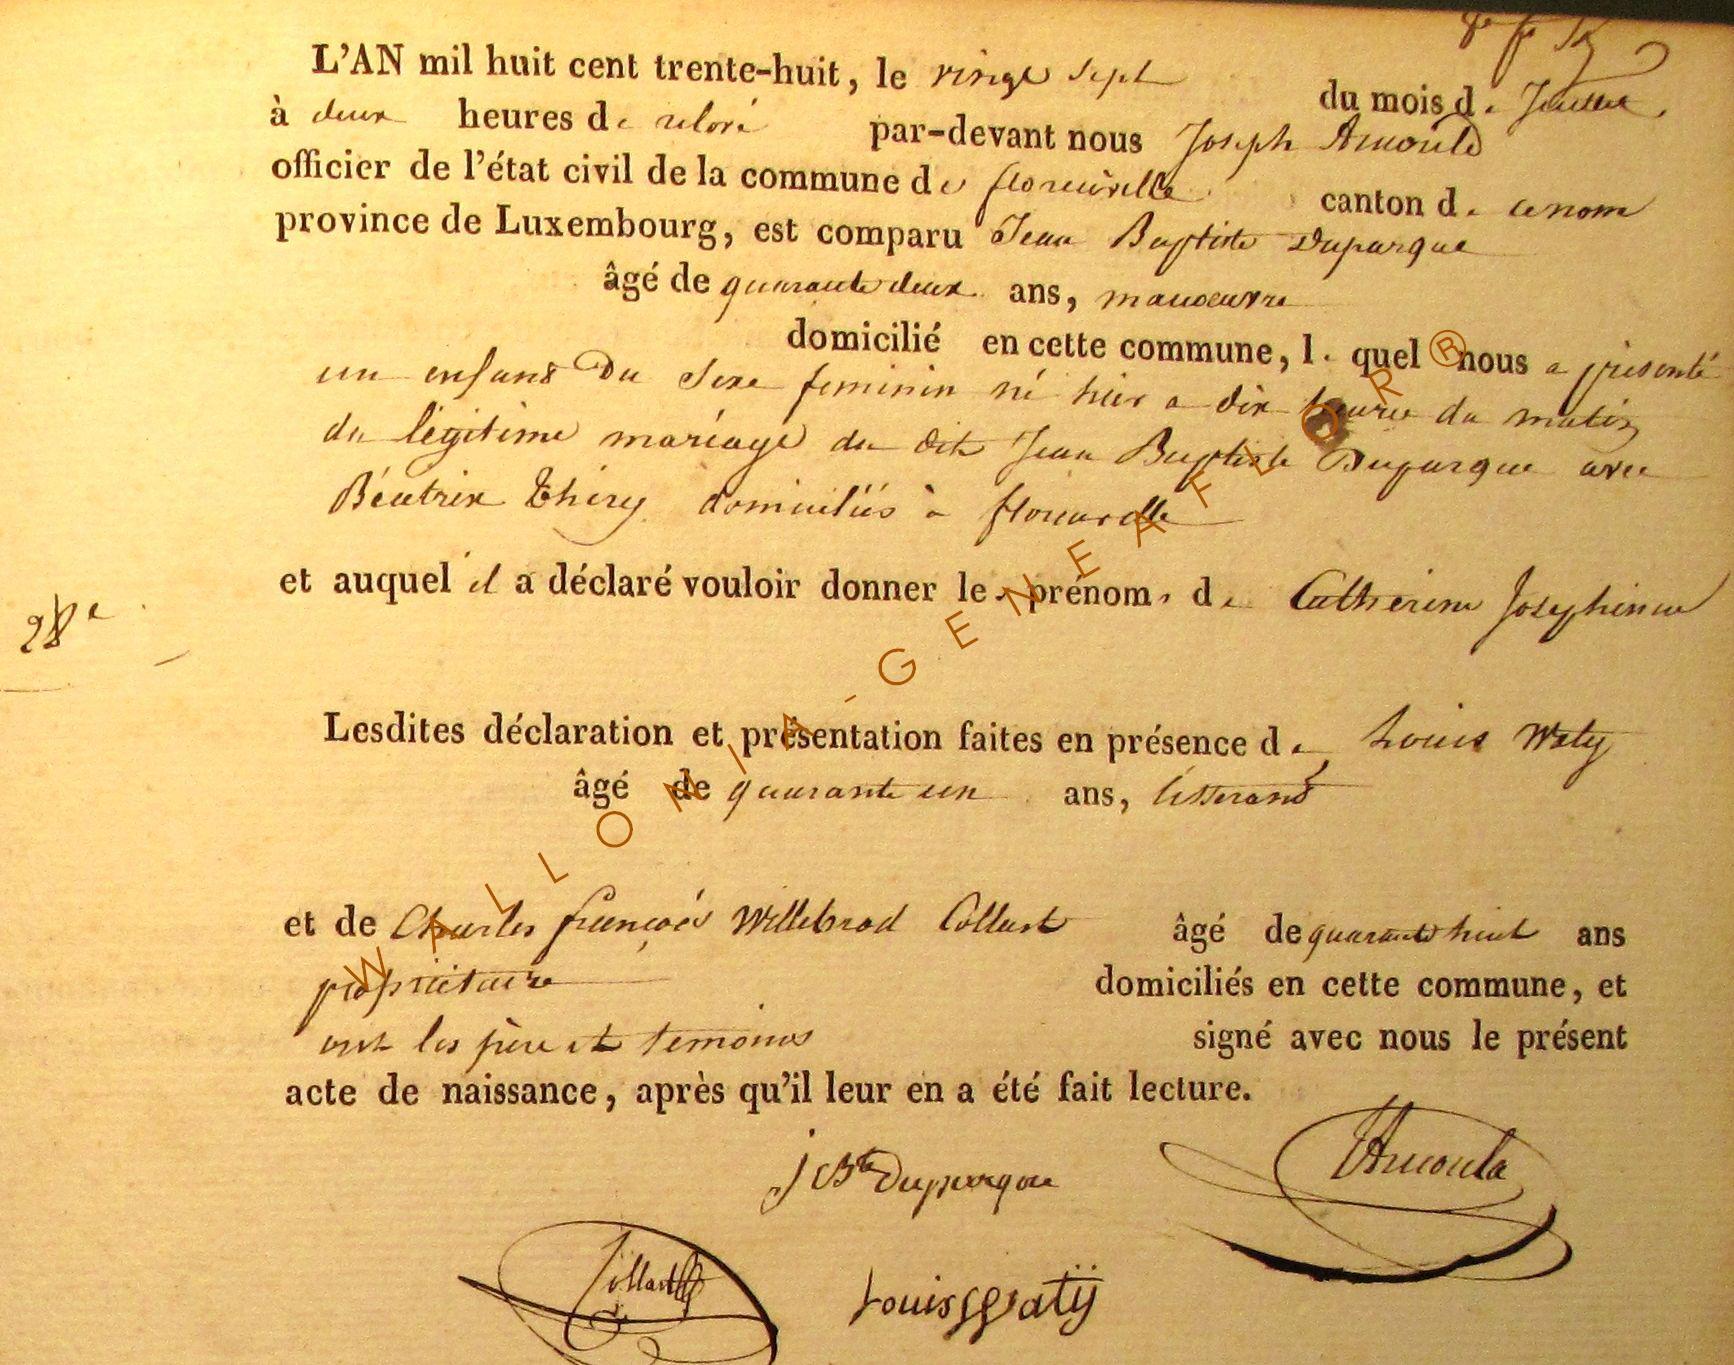 L'AN mil huit cent trente-huit, le vingt sept du mois de Juillet
à deux heures de relevé par-devant nous Joseph Arnould
officier de l'état civil de la commune de florenville canton de ce nom
province de Luxembourg, est comparu Jean Baptiste Duparque
âgé de quarante deux ans, manoeuvre
domicilié en cette commune, lequel nous a présenté
un enfant Du Sexe feminin né hier a dix heures du matin
du légitime mariage du dit Jean Baptiste Duparque avec
Béatrix Thiry domiciliés à florenville
et auquel il a déclaré vouloir donner les prénoms de Catherine Josephinne
28e
Lesdites déclaration et présentation faites en présence de Louis Waty
âgé de quarante un ans, tisserand
et de Charles françois Willebrod Collart âgé de quarante huit ans
propriétaire domiciliés en cette commune, et
ont les père et temoins signé avec nous le présent
acte de naissance, après qu'il leur en a été fait lecture.
j Bte Dupparque JArnould
Collart Louis Watÿ
WALLONIA-GENEAFLOR ®